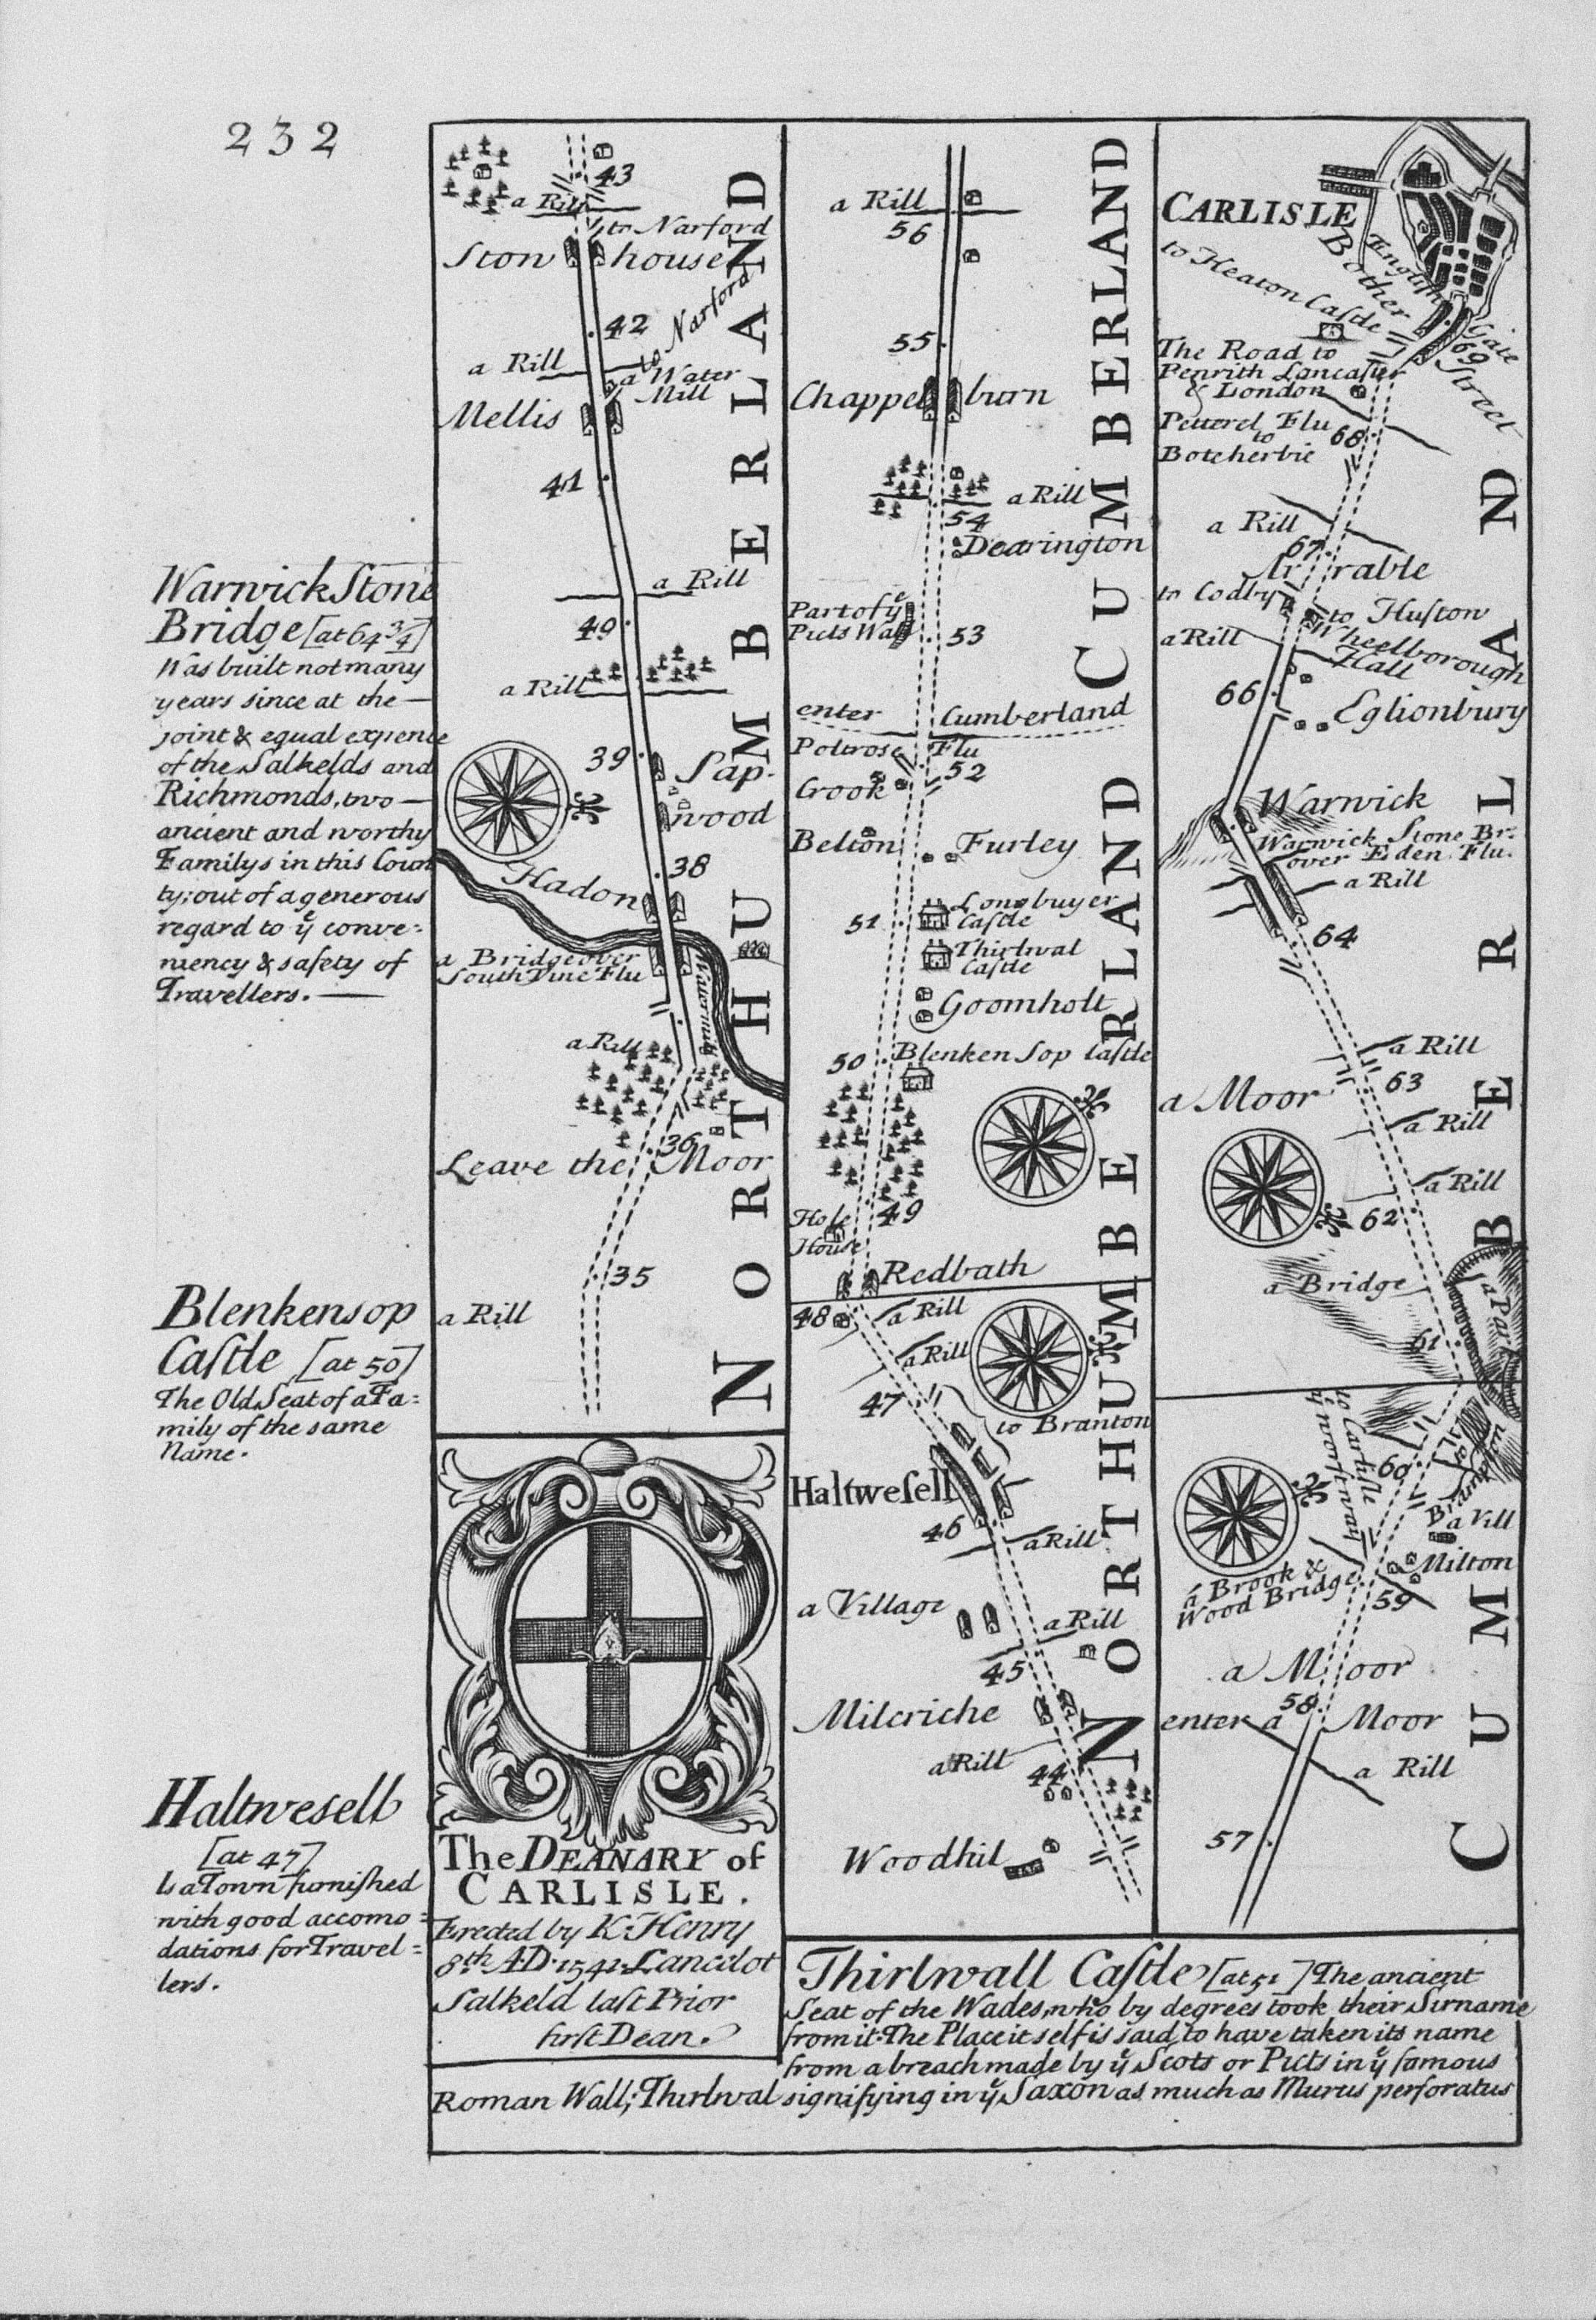 232
Warwick Stone
Bridge [at 64 3/4]
Was built not many
years since at the —
joint & equal expence
of the Salkelds and
Richmonds, two —
ancient and worthy
Familys in this Coun
ty; out of a generous
regard to yͤ conve:
niency & safety of
Travellers. —
Blenkensop
Caſtle [at 50]
The Old Seat of a Fa:
mily of the same
Name.
Haltwesell
[at 47]
Is a Town furniſhed
with good accomo:
dations for Travel:
lers.
43
a Rill
to Narford
Ston house
to Narford
42
a Rill
a Water
Mill
Mellis
41
a Rill
49
a Rill
39
Sap-
wood
38
Hadon
a Bridge over
South Tine Flu
Watermark
a Rill
36
Leave the Moor
35
a Rill
NORTHUMBERLAND
The DEANARY of
CARLISLE.
Erected by K. Henry
8th A.D. 1541. Lancelot
Salkeld laſt Prior
firſt Dean.
a Rill
56
55
Chappel burn
a Rill
54
Dearington
Part of yͤ
Picts Wall
53
enter Cumberland
Poltrose Flu
52
Crook
Belton
Furley
Longbuyer
Caſtle
51
Thirlwal
Caſtle
Goomholt
50
Blenken Sop Caſtle
49
Hole
House
Redbath
CUMBERLAND
48
a Rill
a Rill
47
to Branton
Haltweſell
46
a Rill
a Village
a Rill
45
Milcriche
a Rill
44
Woodhil
NORTHUMBERLAND
CARLISLE
to Heaton Caſtle
Bother
Engliſh
Gate
Street
69
The Road to
Penrith Lancaſter
& London
Petterel Flu
68
to
Botcherbie
a Rill
67
Ar rable
to Codby
to Huſton
a Rill
Wheelborough
Hall
66
Eglionbury
Warwick
Warwick Stone Br:
over Eden Flu.
a Rill
64
a Rill
63
a Moor
a Rill
a Rill
62
a Bridge
61
to Carliſle
60
to
Bramton
a Vill
Milton
a Brook &
Wood Bridge
59
a Moor
58
enter a Moor
a Rill
57
CUMBERLAND
Thirlwall Caſtle [at 51] The ancient
Seat of the Wades, who by degrees took their Sirname
from it. The Place it self is said to have taken its name
from a breach made by yͤ Scots or Picts in yͤ famous
Roman Wall; Thirlwal signifying in yͤ Saxon as much as Murus perforatus